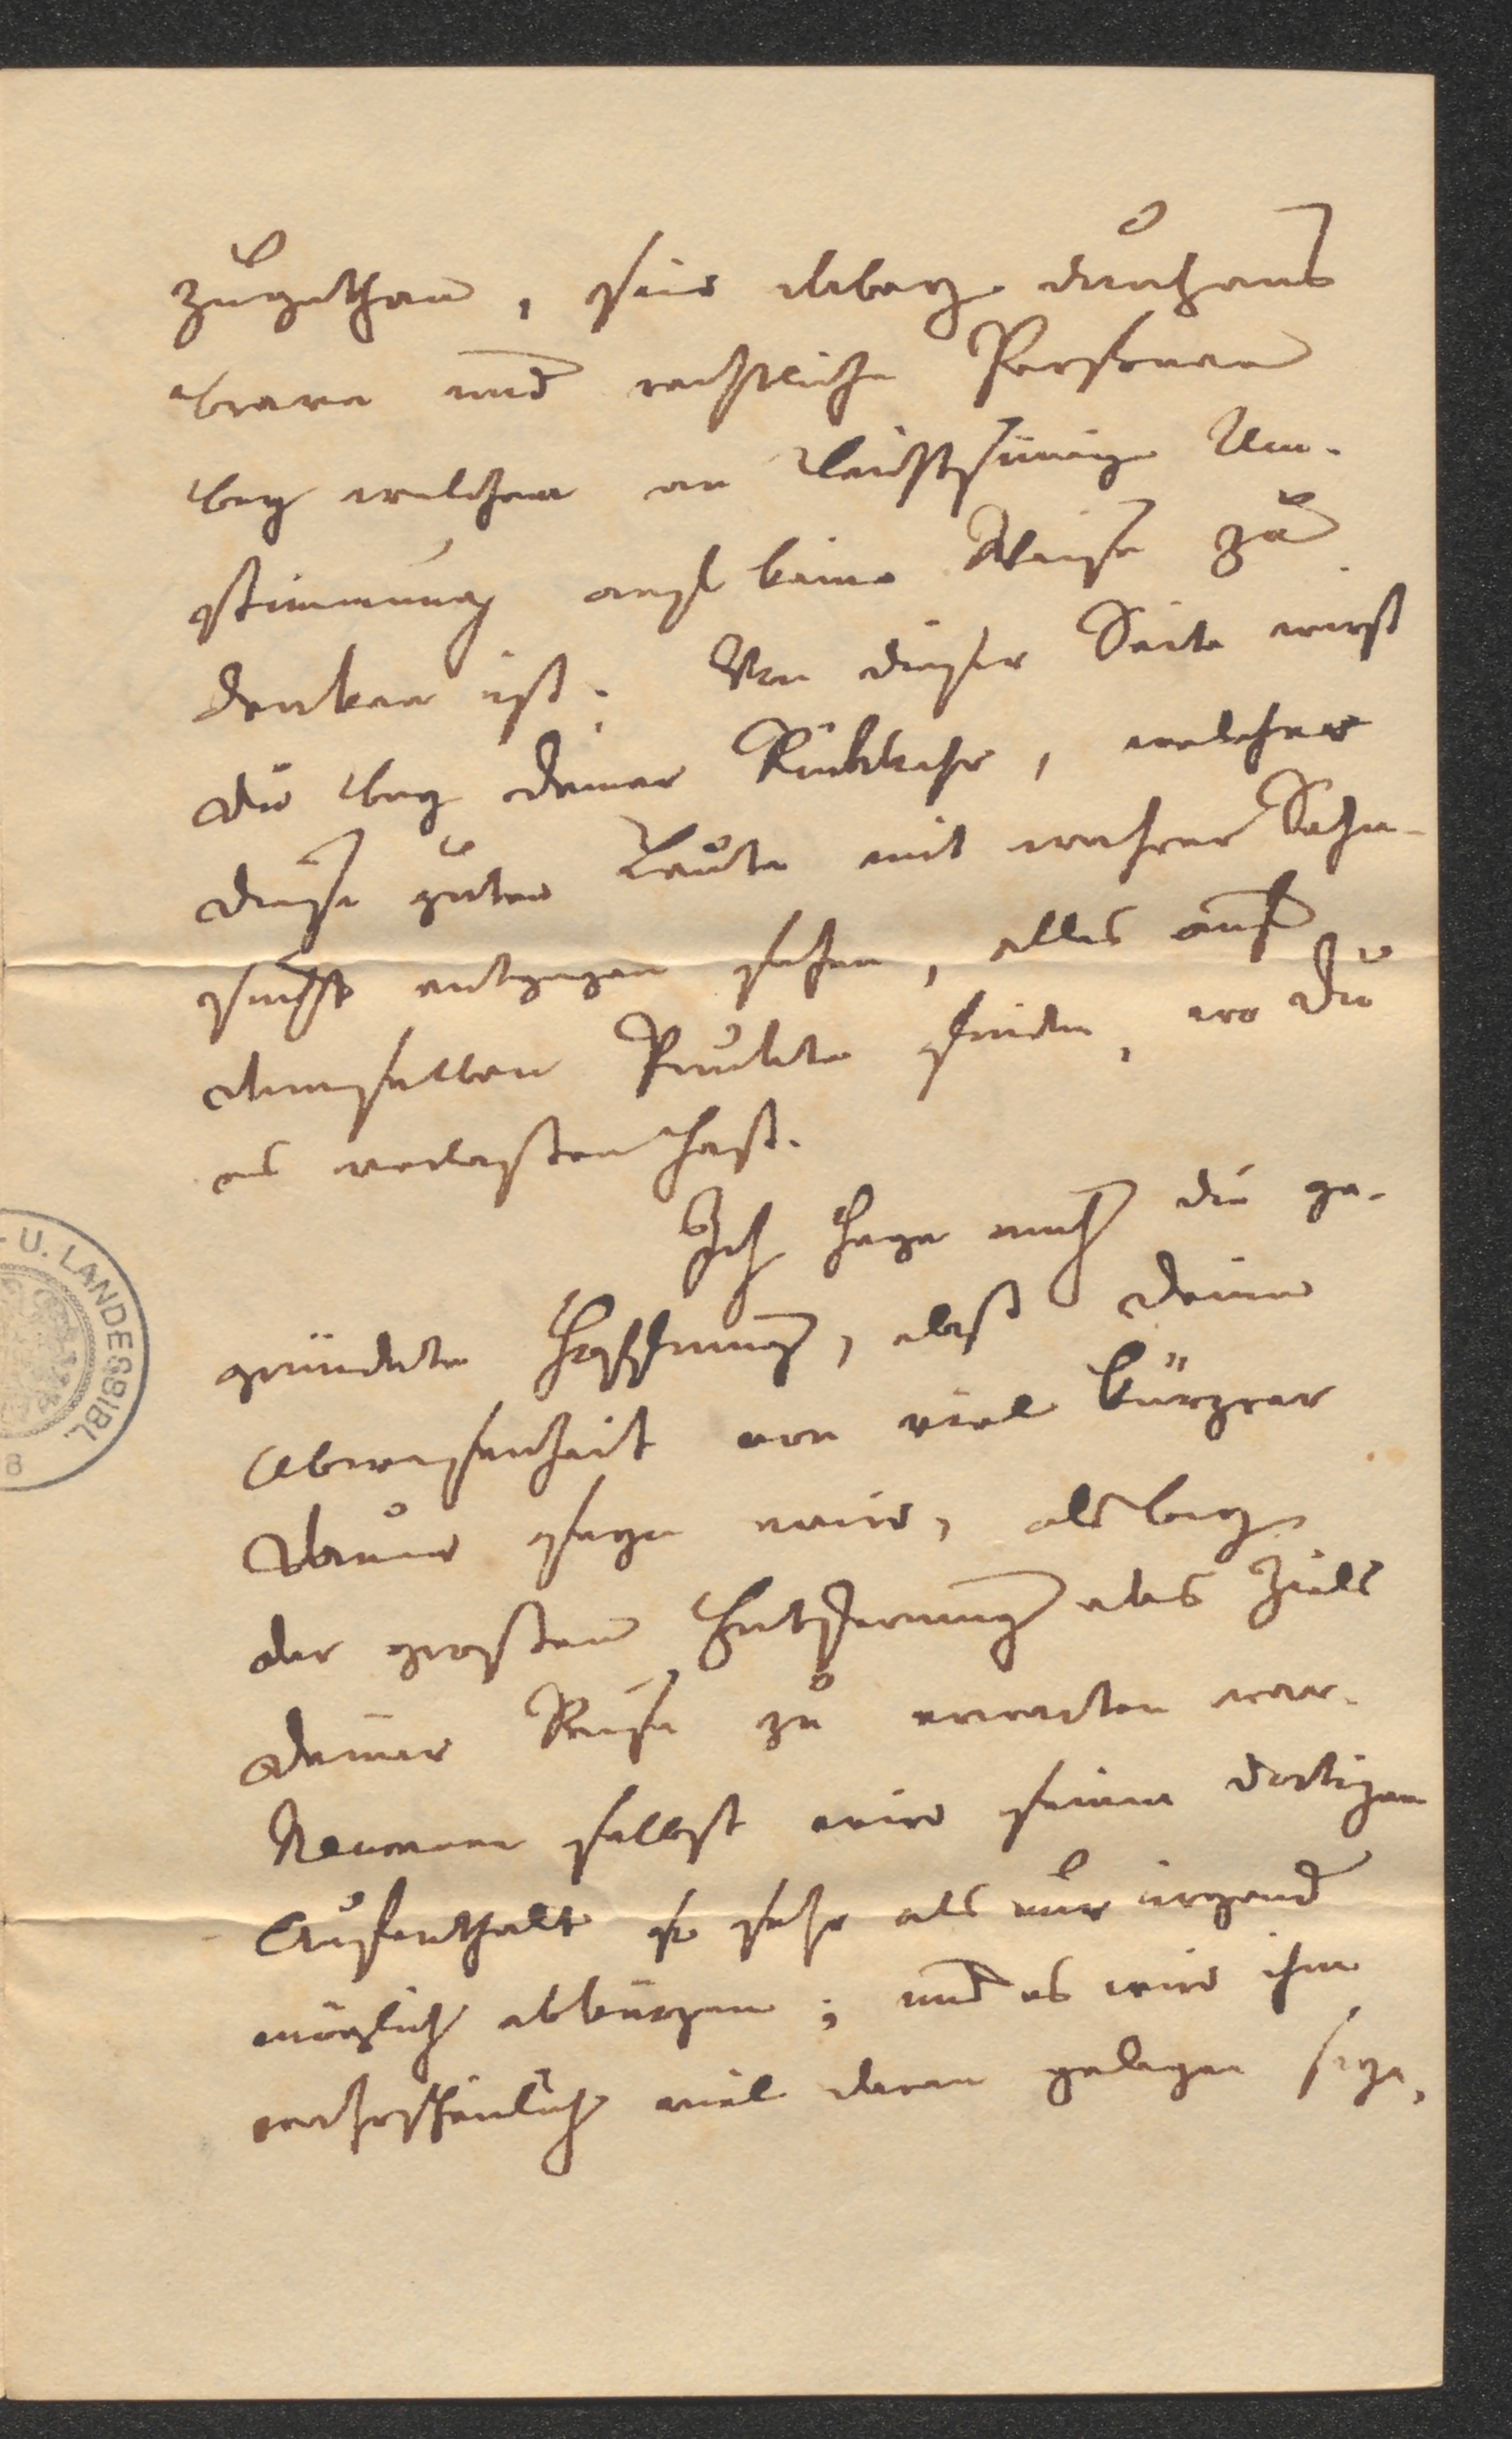 zugethan, sind dabey durchaus
brave und rechtliche Personen
bey welchen an leichtsinnige Um-
stimmung auf keine Weise zu
denken ist. Von dieser Seite wirst
du bey deiner Rückkehr, welcher
diese guten Leute mit wahrer Sehn-
sucht entgegen sehen, alles auf
demselben Punkte finden, wo du
es verlassen hast.
Ich hege auch die ge-
gründete Hoffnung, daß deine
Abwesenheit von viel kürzrer
Dauer seyn wird, als bey
der grossen Entfernung des Ziels
deiner Reise zu erwarten war.
Neumann selbst wird seinen dortigen
Aufenthalt so sehr als nur irgend
möglich abkürzen; und es wird ihm
wahrscheinlich viel daran gelegen seyn,
U. LANDESBIBL.